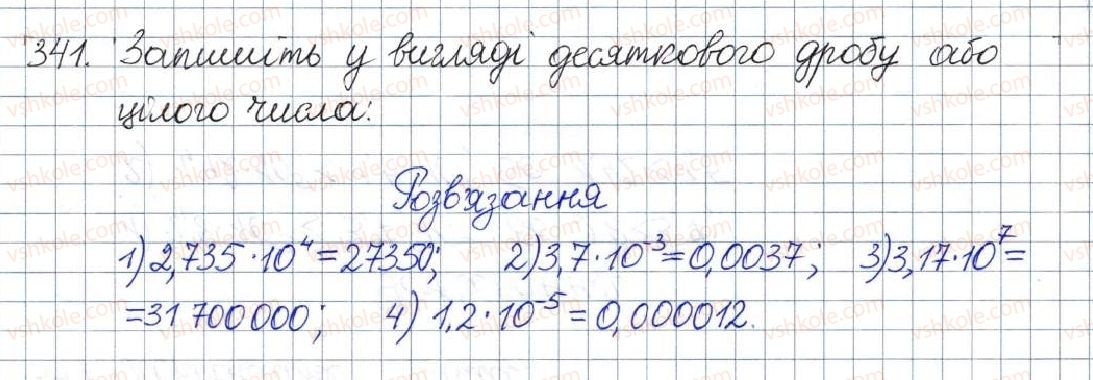 341. Запишіть у вигляді десяткового дробу або
цілого числа:
Розв'язання
1) 2,735 · 10⁴ = 27350; 2) 3,7 · 10⁻³ = 0,0037; 3) 3,17 · 10⁷ =
= 31 700 000; 4) 1,2 · 10⁻⁵ = 0,000012.